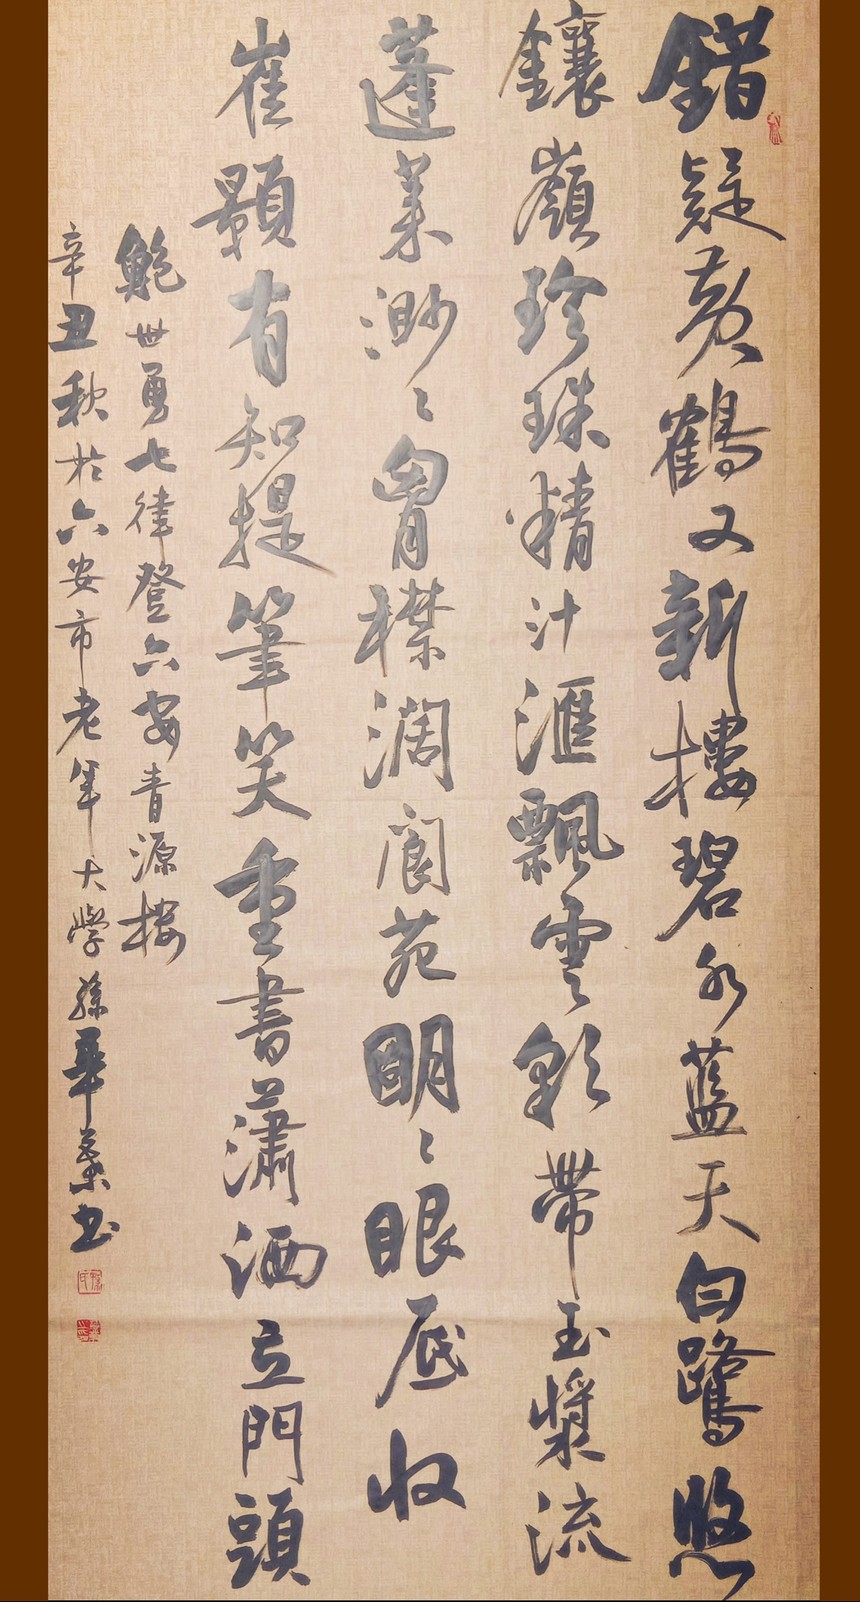 錯疑黃鶴又新樓碧水藍天白鷺悠
鑲嶺珍珠精汁滙飄雲彩帶玉漿流
蓬萊渺〻胷襟濶閬苑朙〻眼底收
崔顥有知提筆笑重書瀟洒立門頭
鮑世勇七律登六安青源樓
辛丑秋於六安市老年大學孫華業书